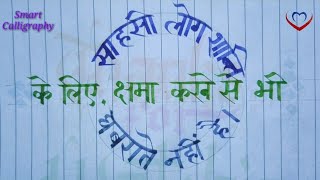 Smart
Calligraphy
साहसी लोग शान्ति
के लिए, क्षमा करने से भी
घबराते नहीं हैं।